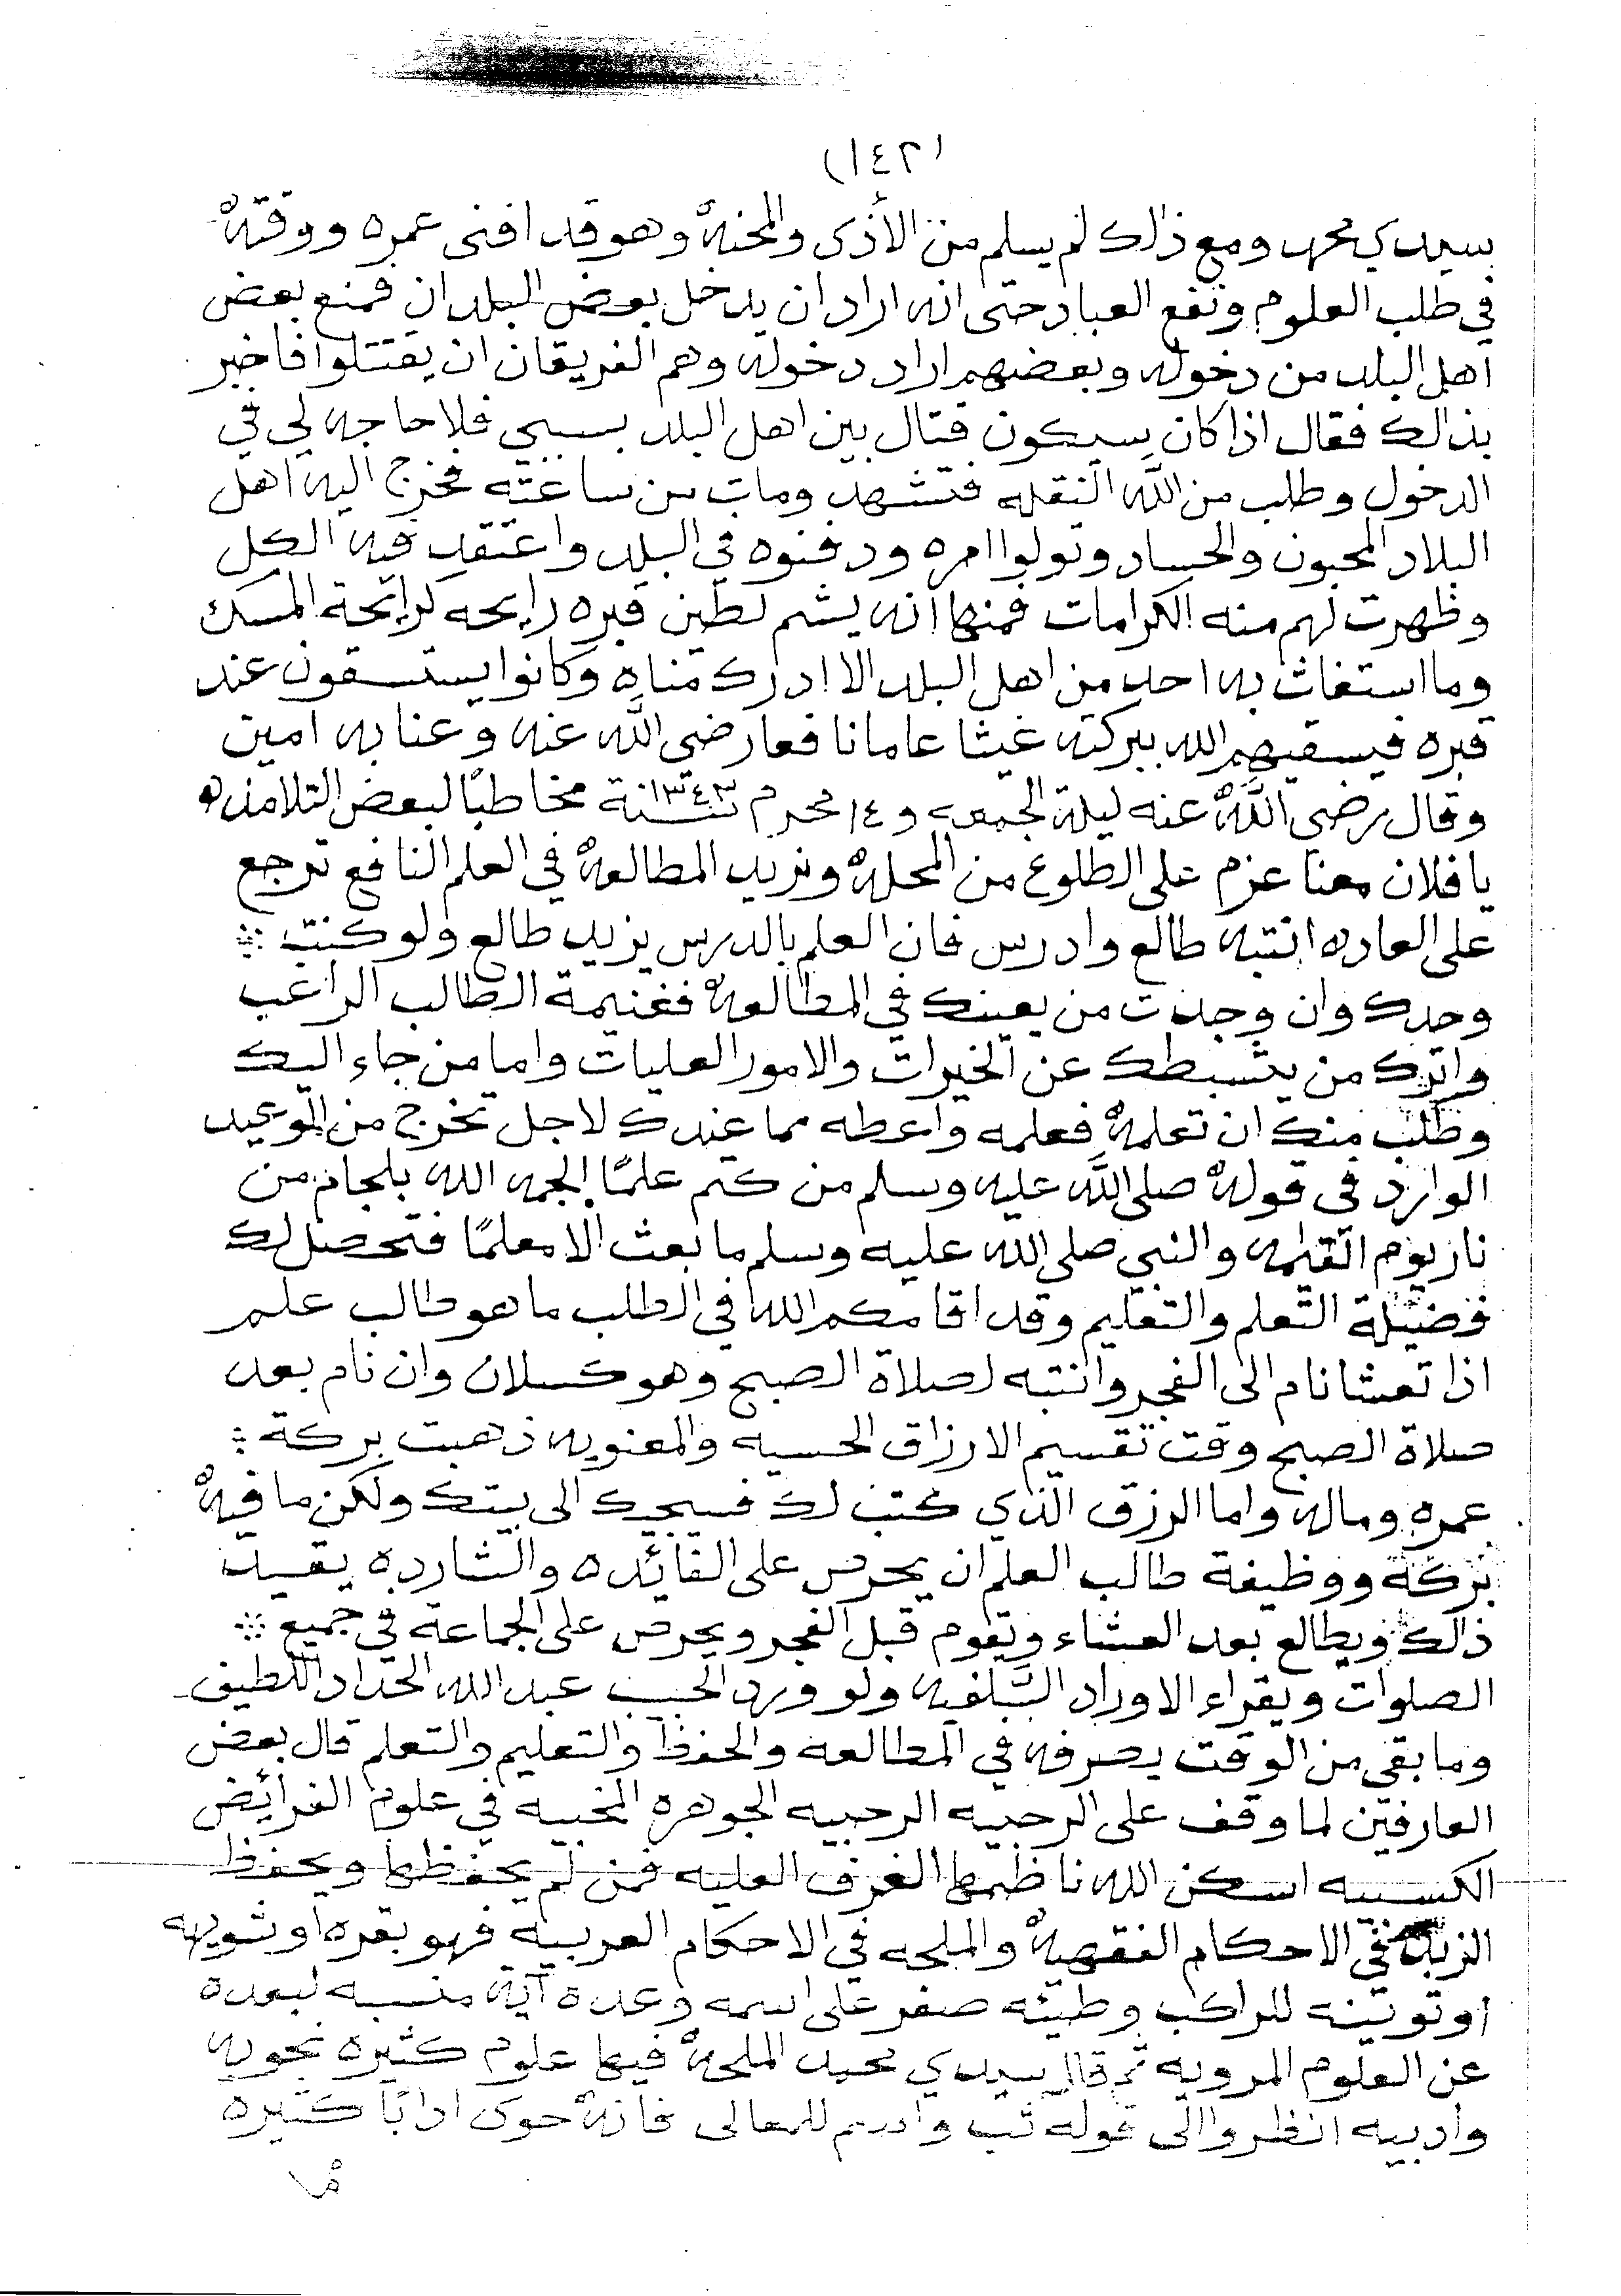 (١٤٢)
سيدي محمد ومع ذالك لم يسلم من الأذى والمحنة وهو قد افنى عمره ووقته
في طلب العلوم ونفع العباد حتى انه اراد ان يدخل بعض البلدان فمنع بعض
اهل البلد من دخوله وبعضهم اراد دخوله وهم الفريقان ان يقتتلوا فاخبر
بذالك فقال اذا كان سيكون قتال بين اهل البلد بسببي فلا حاجه لي في
الدخول وطلب من الله النقله فتشهد ومات من ساعته فخرج اليه اهل
البلاد المحبون والحساد وتولوا امره ودفنوه في البلد واعتقد فيه الكل
وظهرت لهم منه الكرامات فمنها انه يشم لطين قبره رايحه كرايحة المسك
وما استغاث به احد من اهل البلد الا ادرك مناه وكانوا يستسقون عند
قبره فيسقيهم الله ببركته غيثا عاما نافعا رضي الله عنه وعنا به امين
وقال رضي الله عنه ليلة الجمعه و١٤ محرم سنة ١٣٤٣ مخاطبًا لبعض التلامذه
يا فلان معنا عزم على الطلوع من المحلة ونريد المطالعة في العلم النافع ترجع
على العاده انتبه طالع وادرس فان العلم بالدرس يزيد طالع ولو كنت
وحدك وان وجدت من يعينك في المطالعة فغنيمة الطالب الراغب
واترك من يثبطك عن الخيرات والامور العليات واما من جاء اليك
وطلب منك ان تعلمه فعلمه واعطه مما عندك لاجل تخرج من الوعيد
الوارد في قوله صلى الله عليه وسلم من كتم علمًا الجمه الله بلجام من
نار يوم القيمه والنبي صلى الله عليه وسلم ما بعث الا معلمًا فتحصل لك
فضيلة التعلم والتعليم وقد اقامكم الله في الطلب ما هو طالب علم
اذا تعشا نام الى الفجر وانتبه لصلاة الصبح وهو كسلان وان نام بعد
صلاة الصبح وقت تقسيم الارزاق الحسيه والمعنويه ذهبت بركة
عمره وماله واما الرزق الذي كتب لك فسيجيك الى بيتك ولكن ما فيه
بركة ووظيفة طالب العلم ان يحرص على الفائده والشارده يقيد
ذالك ويطالع بعد العشاء ويقوم قبل الفجر ويحرص على الجماعة في جميع
الصلوات ويقراء الاوراد السلفيه ولو ورد الحبيب عبد الله الحداد اللطيف
وما بقي من الوقت يصرفه في المطالعه والحفظ والتعليم والتعلم قال بعض
العارفين لما وقف على الرحبيه الرحبيه الجوهره المخبيه في علوم الفرائض
الكسبيه اسكن الله ناظمها الغرف العليه فمن لم يحفظها ويحفظ
الزبد في الاحكام الفقهية والملحه في الاحكام العربيه فهو بقره او ثويهه
او توتينه للراكب وطيئه صفر على اسمه وعده آية منسبه لبعده
عن العلوم المرويه ثم قال سيدي محمد الملحة فيها علوم كثيره نحويه
وادبيه انظروا الى قوله ثب واسم للمعالي فانه حوى ادابًا كثيره